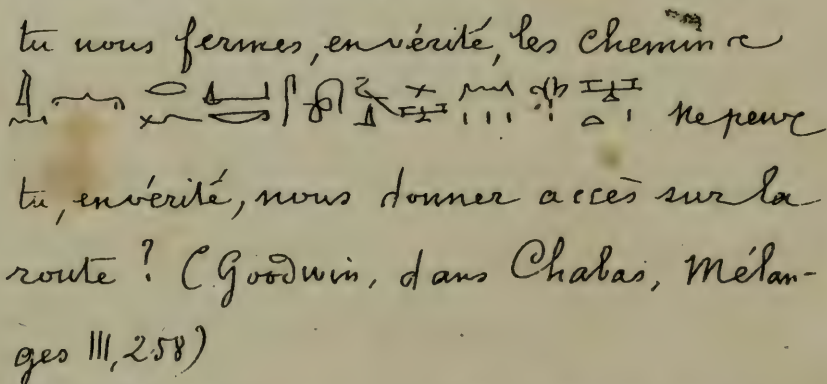 tu nous fermes, en vérité, les chemins
ne peux
tu, en vérité, nous donner accès sur la
route ? (Goodwin, dans Chabas, Mélan-
ges III, 258)